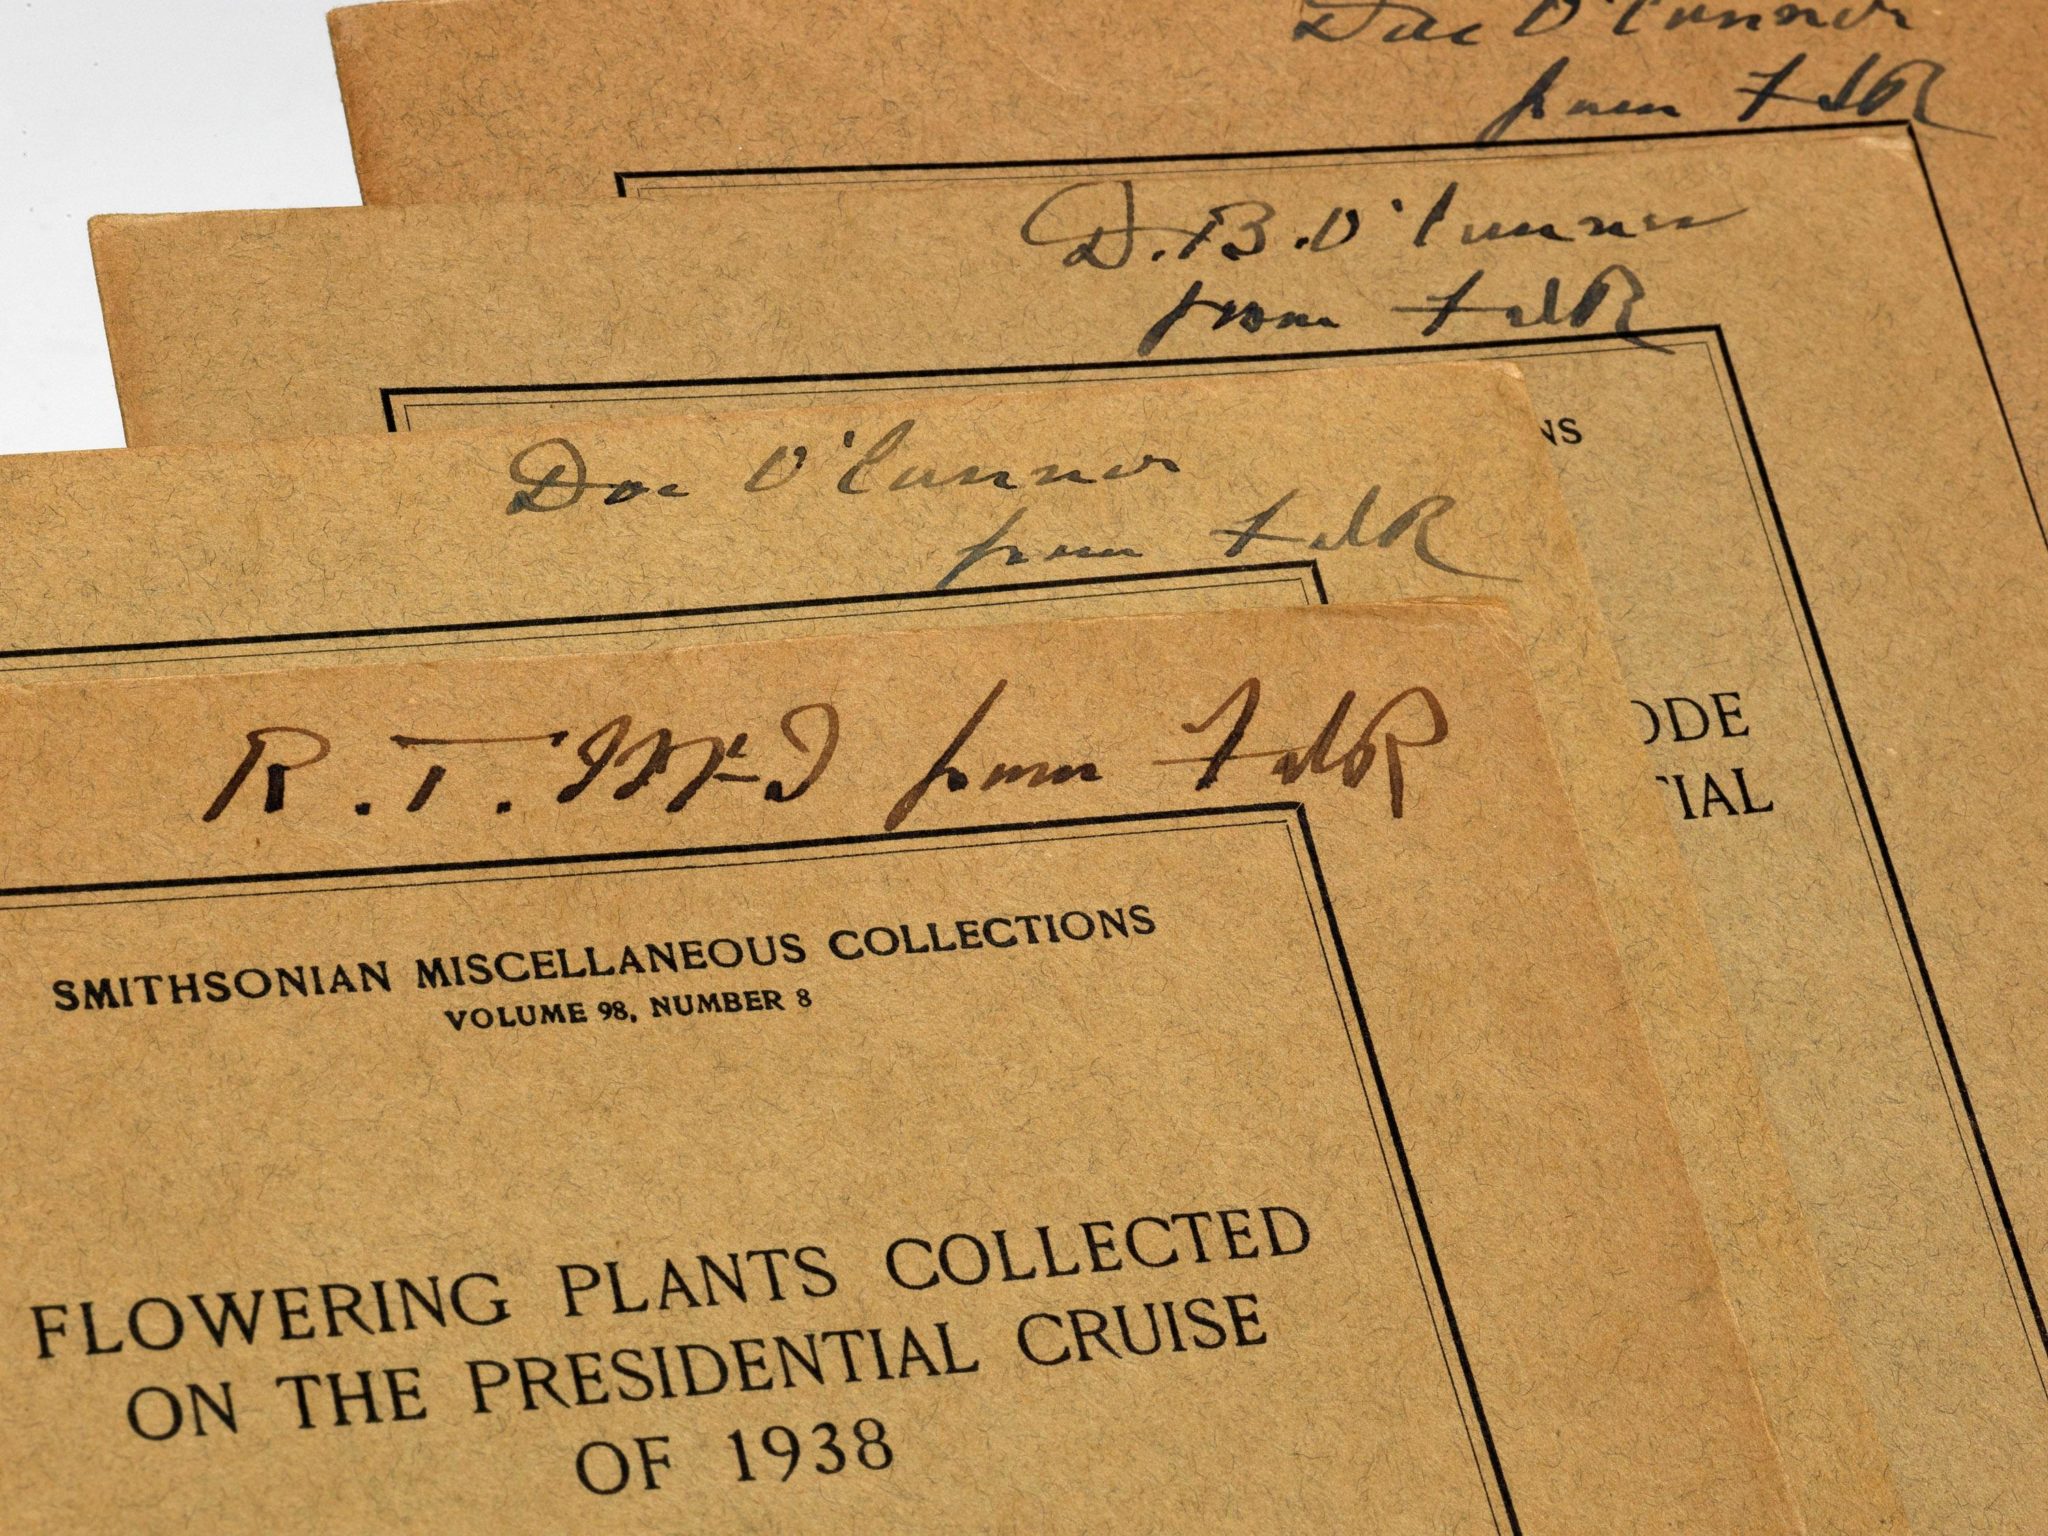 Doc O'Connor
from FDR
D.B.O'Connor
from FDR
NS
ODE
TIAL
Doc O'Connor
from FDR
R.T. McI from FDR
SMITHSONIAN MISCELLANEOUS COLLECTIONS
VOLUME 98, NUMBER 8
FLOWERING PLANTS COLLECTED
ON THE PRESIDENTIAL CRUISE
OF 1938